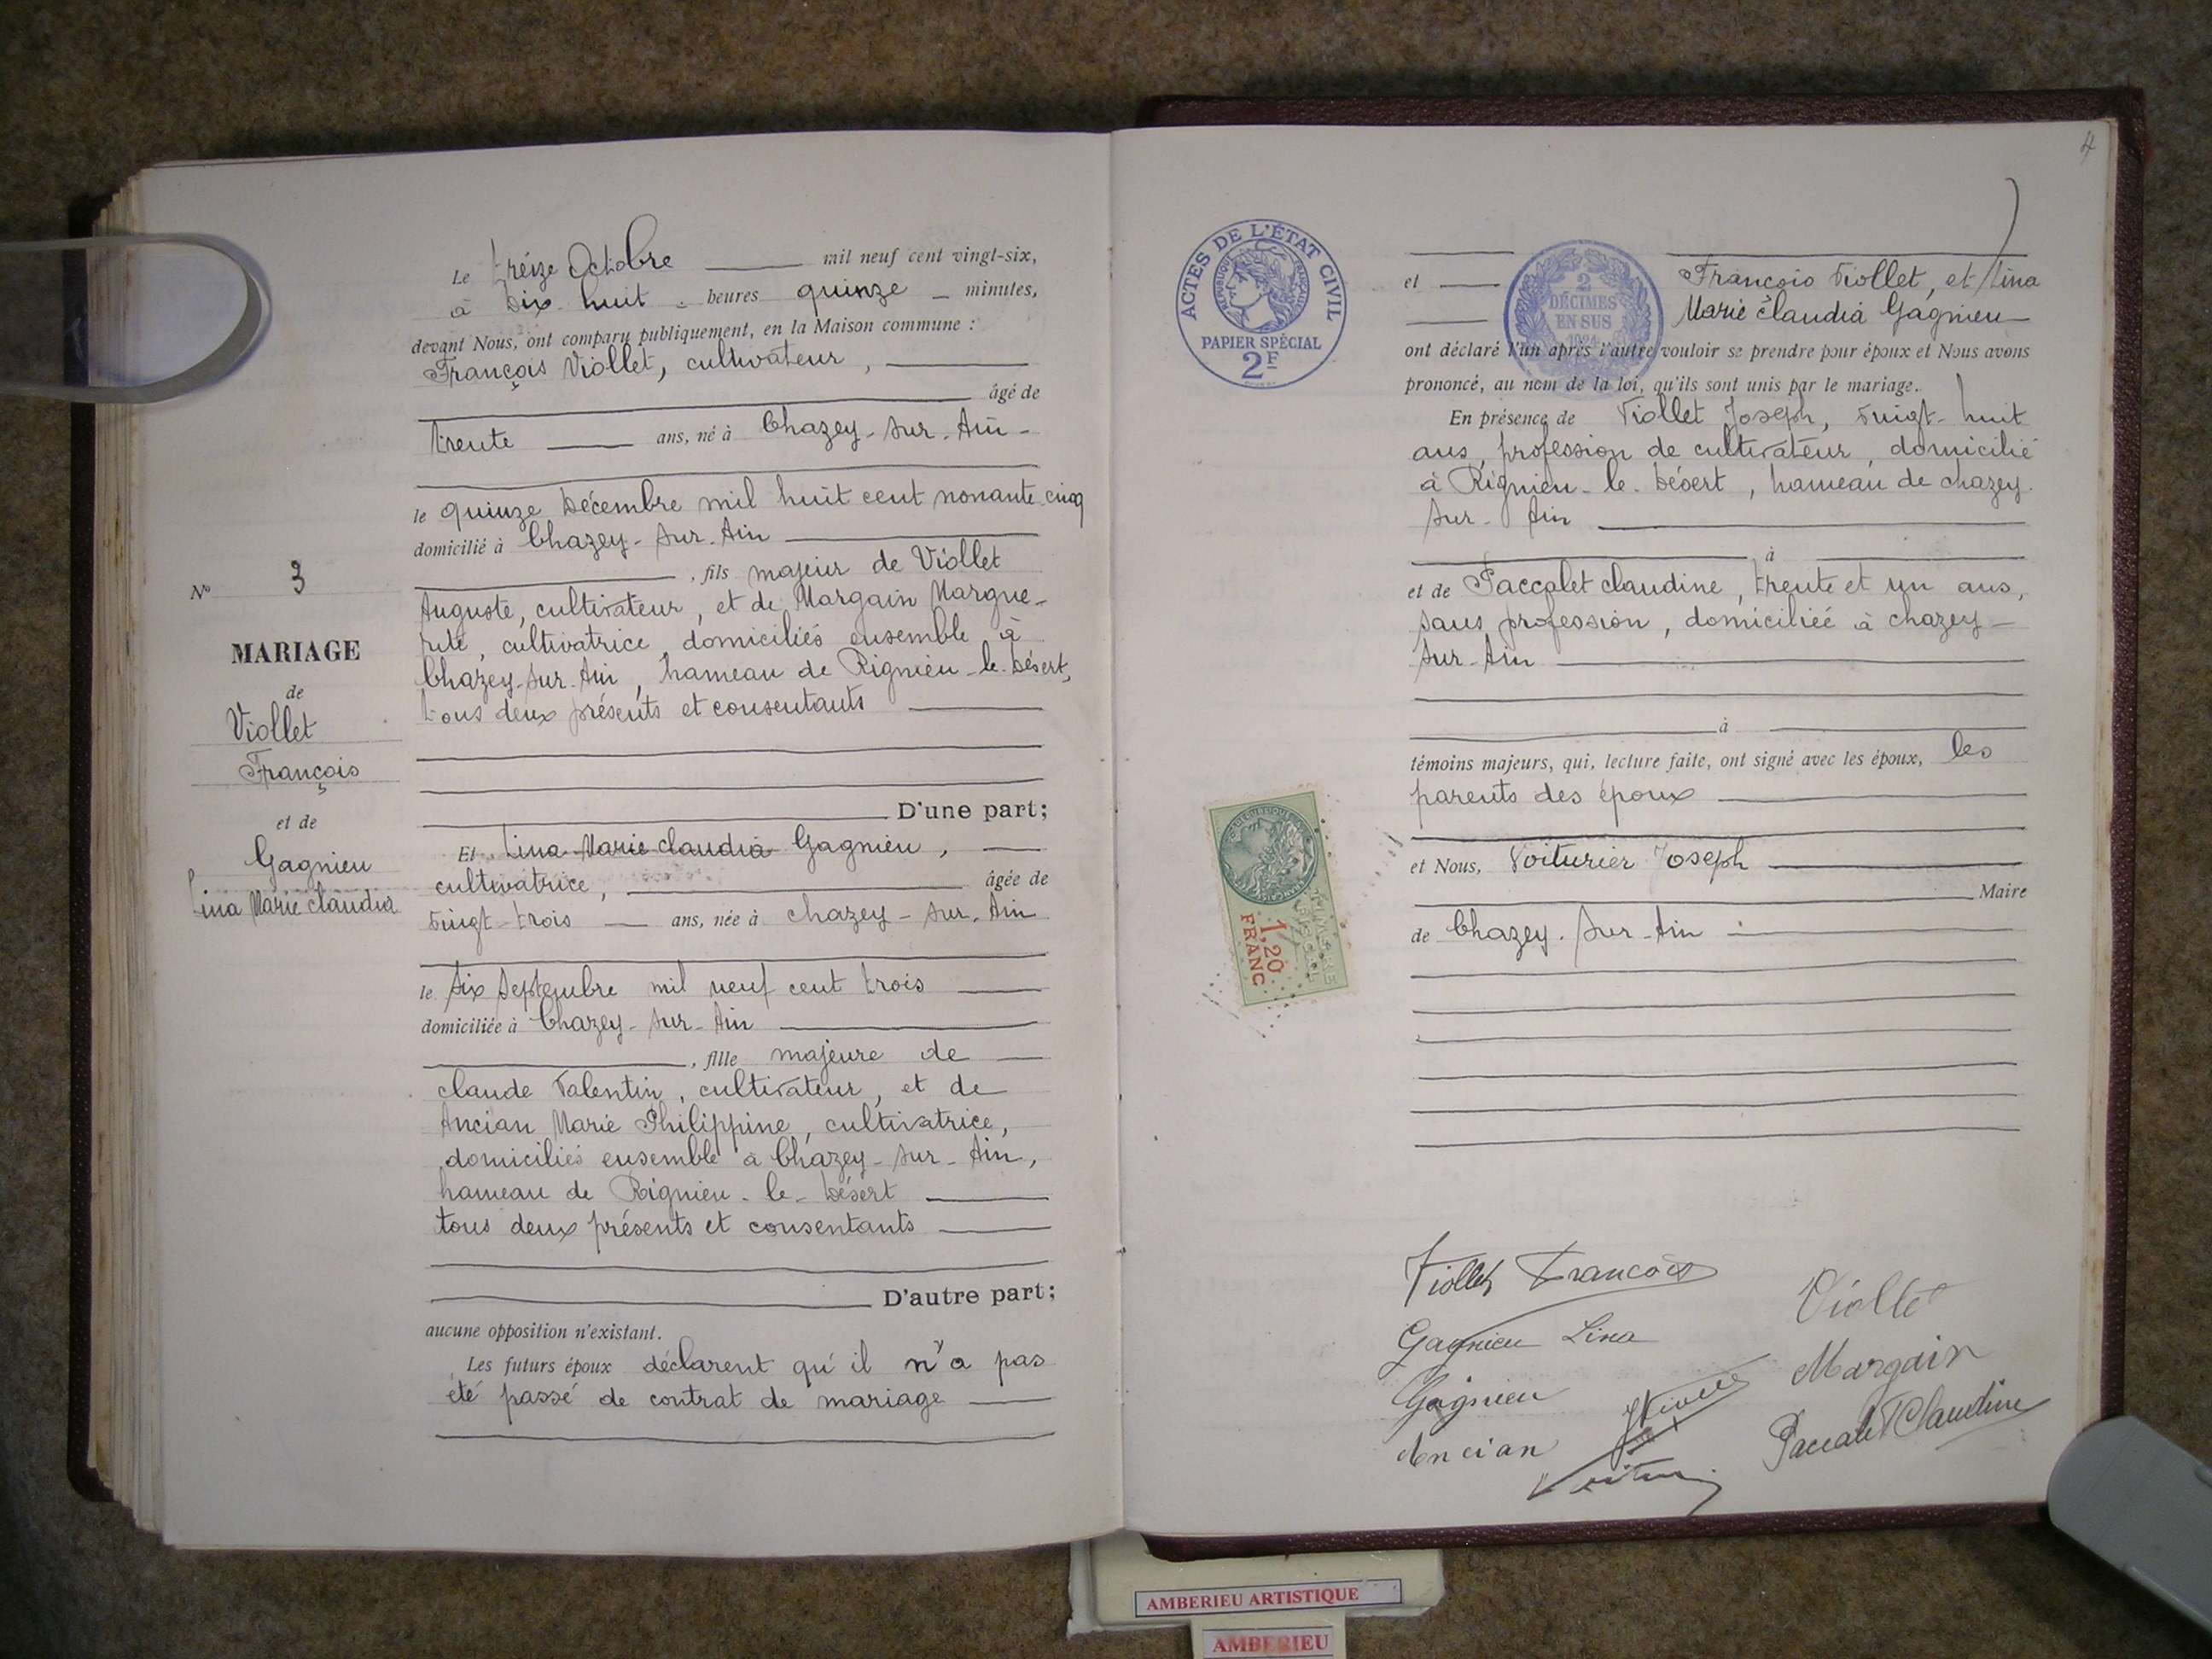 Le treize Octobre mil neuf cent vingt-six,
à Dix huit heures quinze minutes,
devant Nous, ont comparu publiquement, en la Maison commune :
François Viollet, cultivateur,
âgé de
trente ans, né à Chazey-sur-Ain-
le quinze Décembre mil huit cent nonante-cinq
domicilié à Chazey-sur-Ain
, fils majeur de Viollet
Auguste, cultivateur, et de Margain Margue-
rite, cultivatrice, domiciliés ensemble à
Chazey-sur-Ain, hameau de Rignieu-le-Désert,
tous deux présents et consentants
D'une part;
Et Lina Marie Claudia Gagnieu,
cultivatrice, âgée de
Vingt-trois ans, née à Chazey-sur-Ain
le six Septembre mil neuf cent trois
domiciliée à Chazey-sur-Ain
, fille majeure de
Claude Valentin, cultivateur, et de
Ancian Marie Philippine, cultivatrice,
domiciliés ensemble à Chazey-sur-Ain,
hameau de Rignieu-le-Désert
tous deux présents et consentants
D'autre part;
aucune opposition n'existant.
Les futurs époux déclarent qu'il n'a pas
été passé de contrat de mariage
No 3
MARIAGE
de
Viollet
François
et de
Gagnieu
Lina Marie Claudia
4
ACTES DE L'ÉTAT CIVIL
RÉPUBLIQUE FRANÇAISE
PAPIER SPÉCIAL
2F
2
DÉCIMES
EN SUS
1924
et François Viollet, et Lina
Marie Claudia Gagnieu
ont déclaré l'un après l'autre vouloir se prendre pour époux et Nous avons
prononcé, au nom de la loi, qu'ils sont unis par le mariage.
En présence de Viollet Joseph, Vingt-huit
ans, profession de cultivateur, domicilié
à Rignieu-le-Désert, hameau de Chazey-
sur-Ain
à
et de Paccalet Claudine, trente et un ans,
sans profession, domiciliée à Chazey-
sur-Ain
à
témoins majeurs, qui, lecture faite, ont signé avec les époux, les
parents des époux
et Nous, Voiturier Joseph
Maire
de Chazey-sur-Ain
1,20
FRANC
Viollet Francois
Gagnieu Lina
Gagnieu
Ancian
Viollet
Margain
Paccalet Claudine
AMBERIEU ARTISTIQUE
AMBERIEU